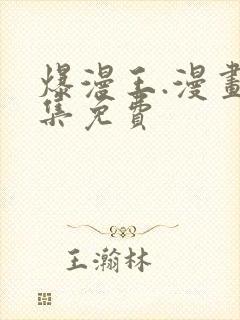 爆漫王.漫畫
集免費
王瀚林